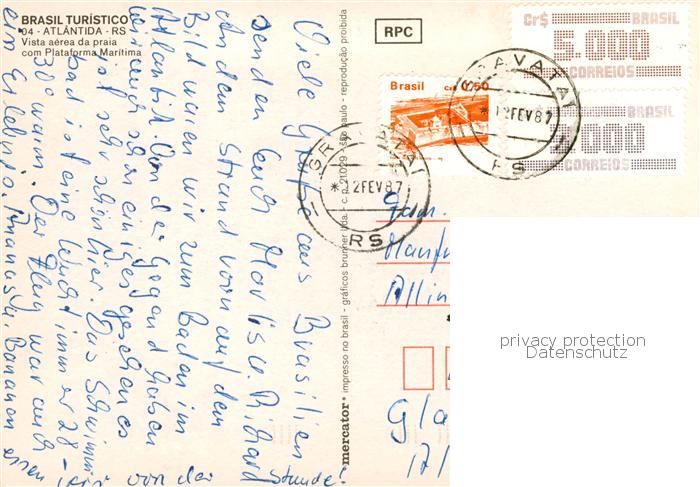 BRASIL TURÍSTICO
04 - ATLÂNTIDA - RS
Vista aérea da praia
com Plataforma Marítima
RPC
Brasil Cz$ 0,50
Cr$ BRASIL
5.000
CORREIOS
BRASIL
.000
CORREIOS
GRAVATAI
*12FEV87
RS
GRAVATAI
*12FEV87
RS
mercator® impresso no brasil - gráficos brunner ltda. - c. p. 21029 - são paulo - reprodução proibida
Viele Grüße aus Brasilien
senden Euch Marlis u. Richard
An dem Strand vorn auf dem
Bild waren wir zum Baden im
Atlantik. Von der Gegend haben
wir auch schon einiges gesehen es
ist sehr schön hier. Das Schwimm
bad ist eine Wucht immer 28 -
30° warm. Der Flug war auch
ein Erlebnis. Ananas u. Bananen
essen wir von der Staude!
Fam.
Manf
Allin
Gla
171
privacy protection
Datenschutz